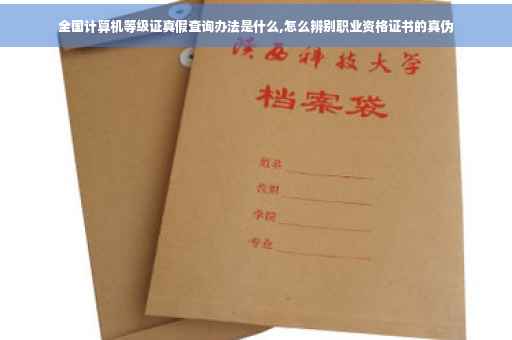 全国计算机等级证真假查询办法是什么,怎么辨别职业资格证书的真伪
陕西科技大学
档案袋
姓名
学院
专业